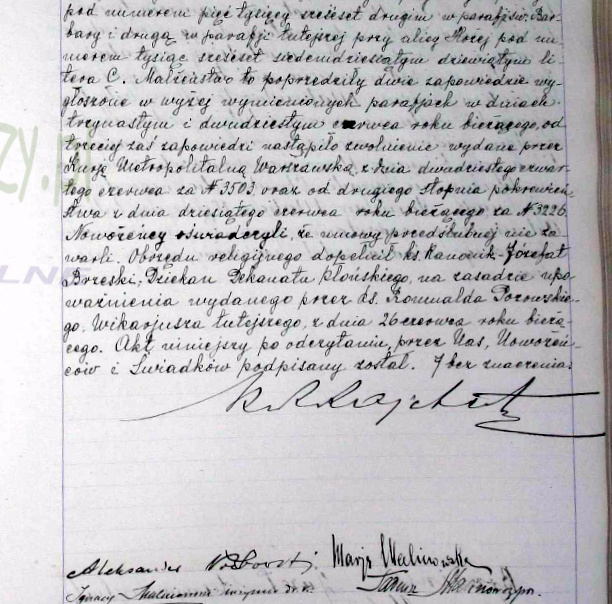 pod numerem pięć tysięcy sześćset drugim w parafji św. Bar-
bary i drugą w parafji tutejszej przy ulicy Hożej pod nu-
merem tysiąc sześćset siedemdziesiątym dziewiątym li-
tera C. Małżeństwo to poprzedziły dwie zapowiedzie wy-
głoszone w wyżej wymienionych parafjach w dniach
trzynastym i dwudziestym czerwca roku bieżącego, od
trzeciej zaś zapowiedzi nastąpiło zwolnienie wydane przez
Kurję Metropolitalną Warszawską z dnia dwudziestego czwar-
tego czerwca za N 3503 oraz od drugiego stopnia pokrewień-
stwa z dnia dziesiątego czerwca roku bieżącego za N 3226.
Nowożeńcy oświadczyli, że umowy przedślubnej nie za
warli. Obrzędu religijnego dopełnił ks. Kanonik Józefat
Brzeski, Dziekan Dekanatu Płońskiego, na zasadzie upo
ważnienia wydanego przez ks. Romualda
go, Wikarjusza tutejszego, z dnia 26 czerwca roku bieżą-
cego. Akt niniejszy po odczytaniu, przez Nas, Nowożeń-
ców i Świadków podpisany został. 7 bez znaczenia.
Aleksander Marja
Ignacy